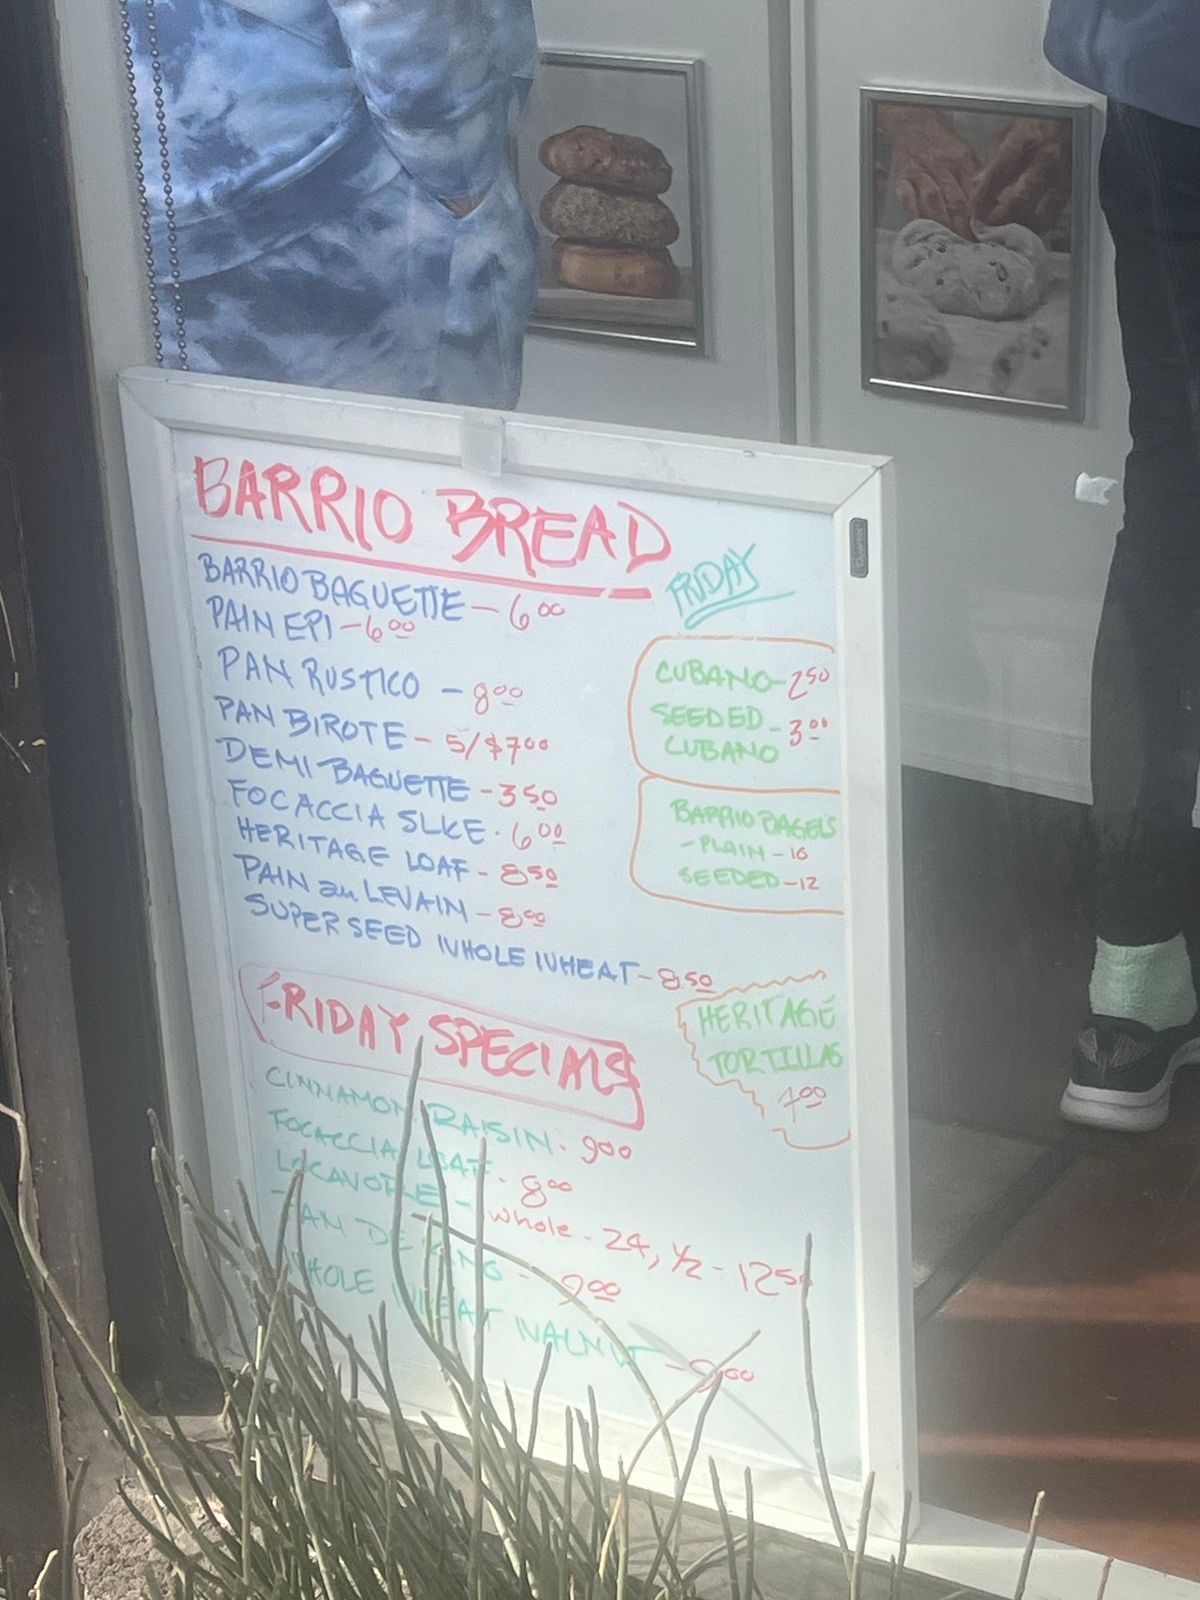 BARRIO BREAD
FRIDAY
BARRIO BAGUETTE - 6 00
PAIN EPI - 6 00
PAN RUSTICO - 8 00
PAN BIROTE - 5/$7 00
DEMI BAGUETTE - 3 50
FOCACCIA SLICE - 6 00
HERITAGE LOAF - 8 50
PAIN au LEVAIN - 8 00
SUPER SEED WHOLE WHEAT - 8 50
CUBANO - 2 50
SEEDED - 3 00
CUBANO
BARRIO BAGELS
- PLAIN - 10
SEEDED - 12
HERITAGE
TORTILLAS
7 00
FRIDAY SPECIALS
CINNAMON RAISIN - 9 00
FOCACCIA LOAF - 8 00
whole - 24, 1/2 - 12 50
PAN DE - 9 00
WHOLE WHEAT WALNUT - 9 00